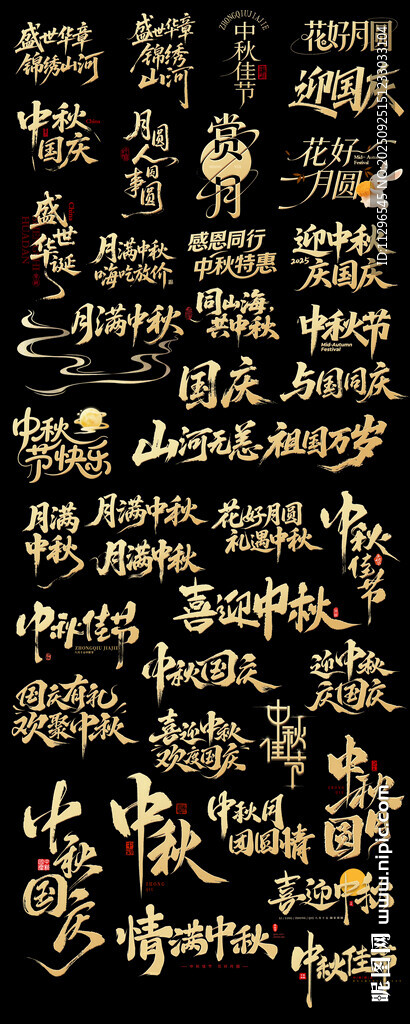 盛世华章
锦绣山河
盛世华章
锦绣
山河
ZHONGQIUJIAJIE
中秋佳节
花好月圆
迎国庆
中秋
国庆
China
月圆
人圆
事圆
赏月
花好
月圆
Mid-Autumn
Festival
盛世
华诞
China
HUADAN
月满中秋
嗨吃放价
感恩同行
中秋特惠
迎中秋
2025
庆国庆
月满中秋
同山海,
共中秋
中秋节
Mid-Autumn
Festival
国庆
与国同庆
中秋
节快乐
山河无恙 祖国万岁
月满
中秋
月满中秋
月满中秋
花好月圆
礼遇中秋
中秋
佳节
中秋佳节
ZHONGQIU JIAJIE
喜迎中秋
中秋国庆
迎中秋
庆国庆
国庆有礼
欢聚中秋
喜迎中秋
欢度国庆
中秋
佳节
中秋
国庆
中秋
国庆
中秋
中秋月
团圆情
喜迎中秋
情满中秋
中秋佳节
ID:11296545 NO:20250925151233933104
昵图网 www.nipic.com